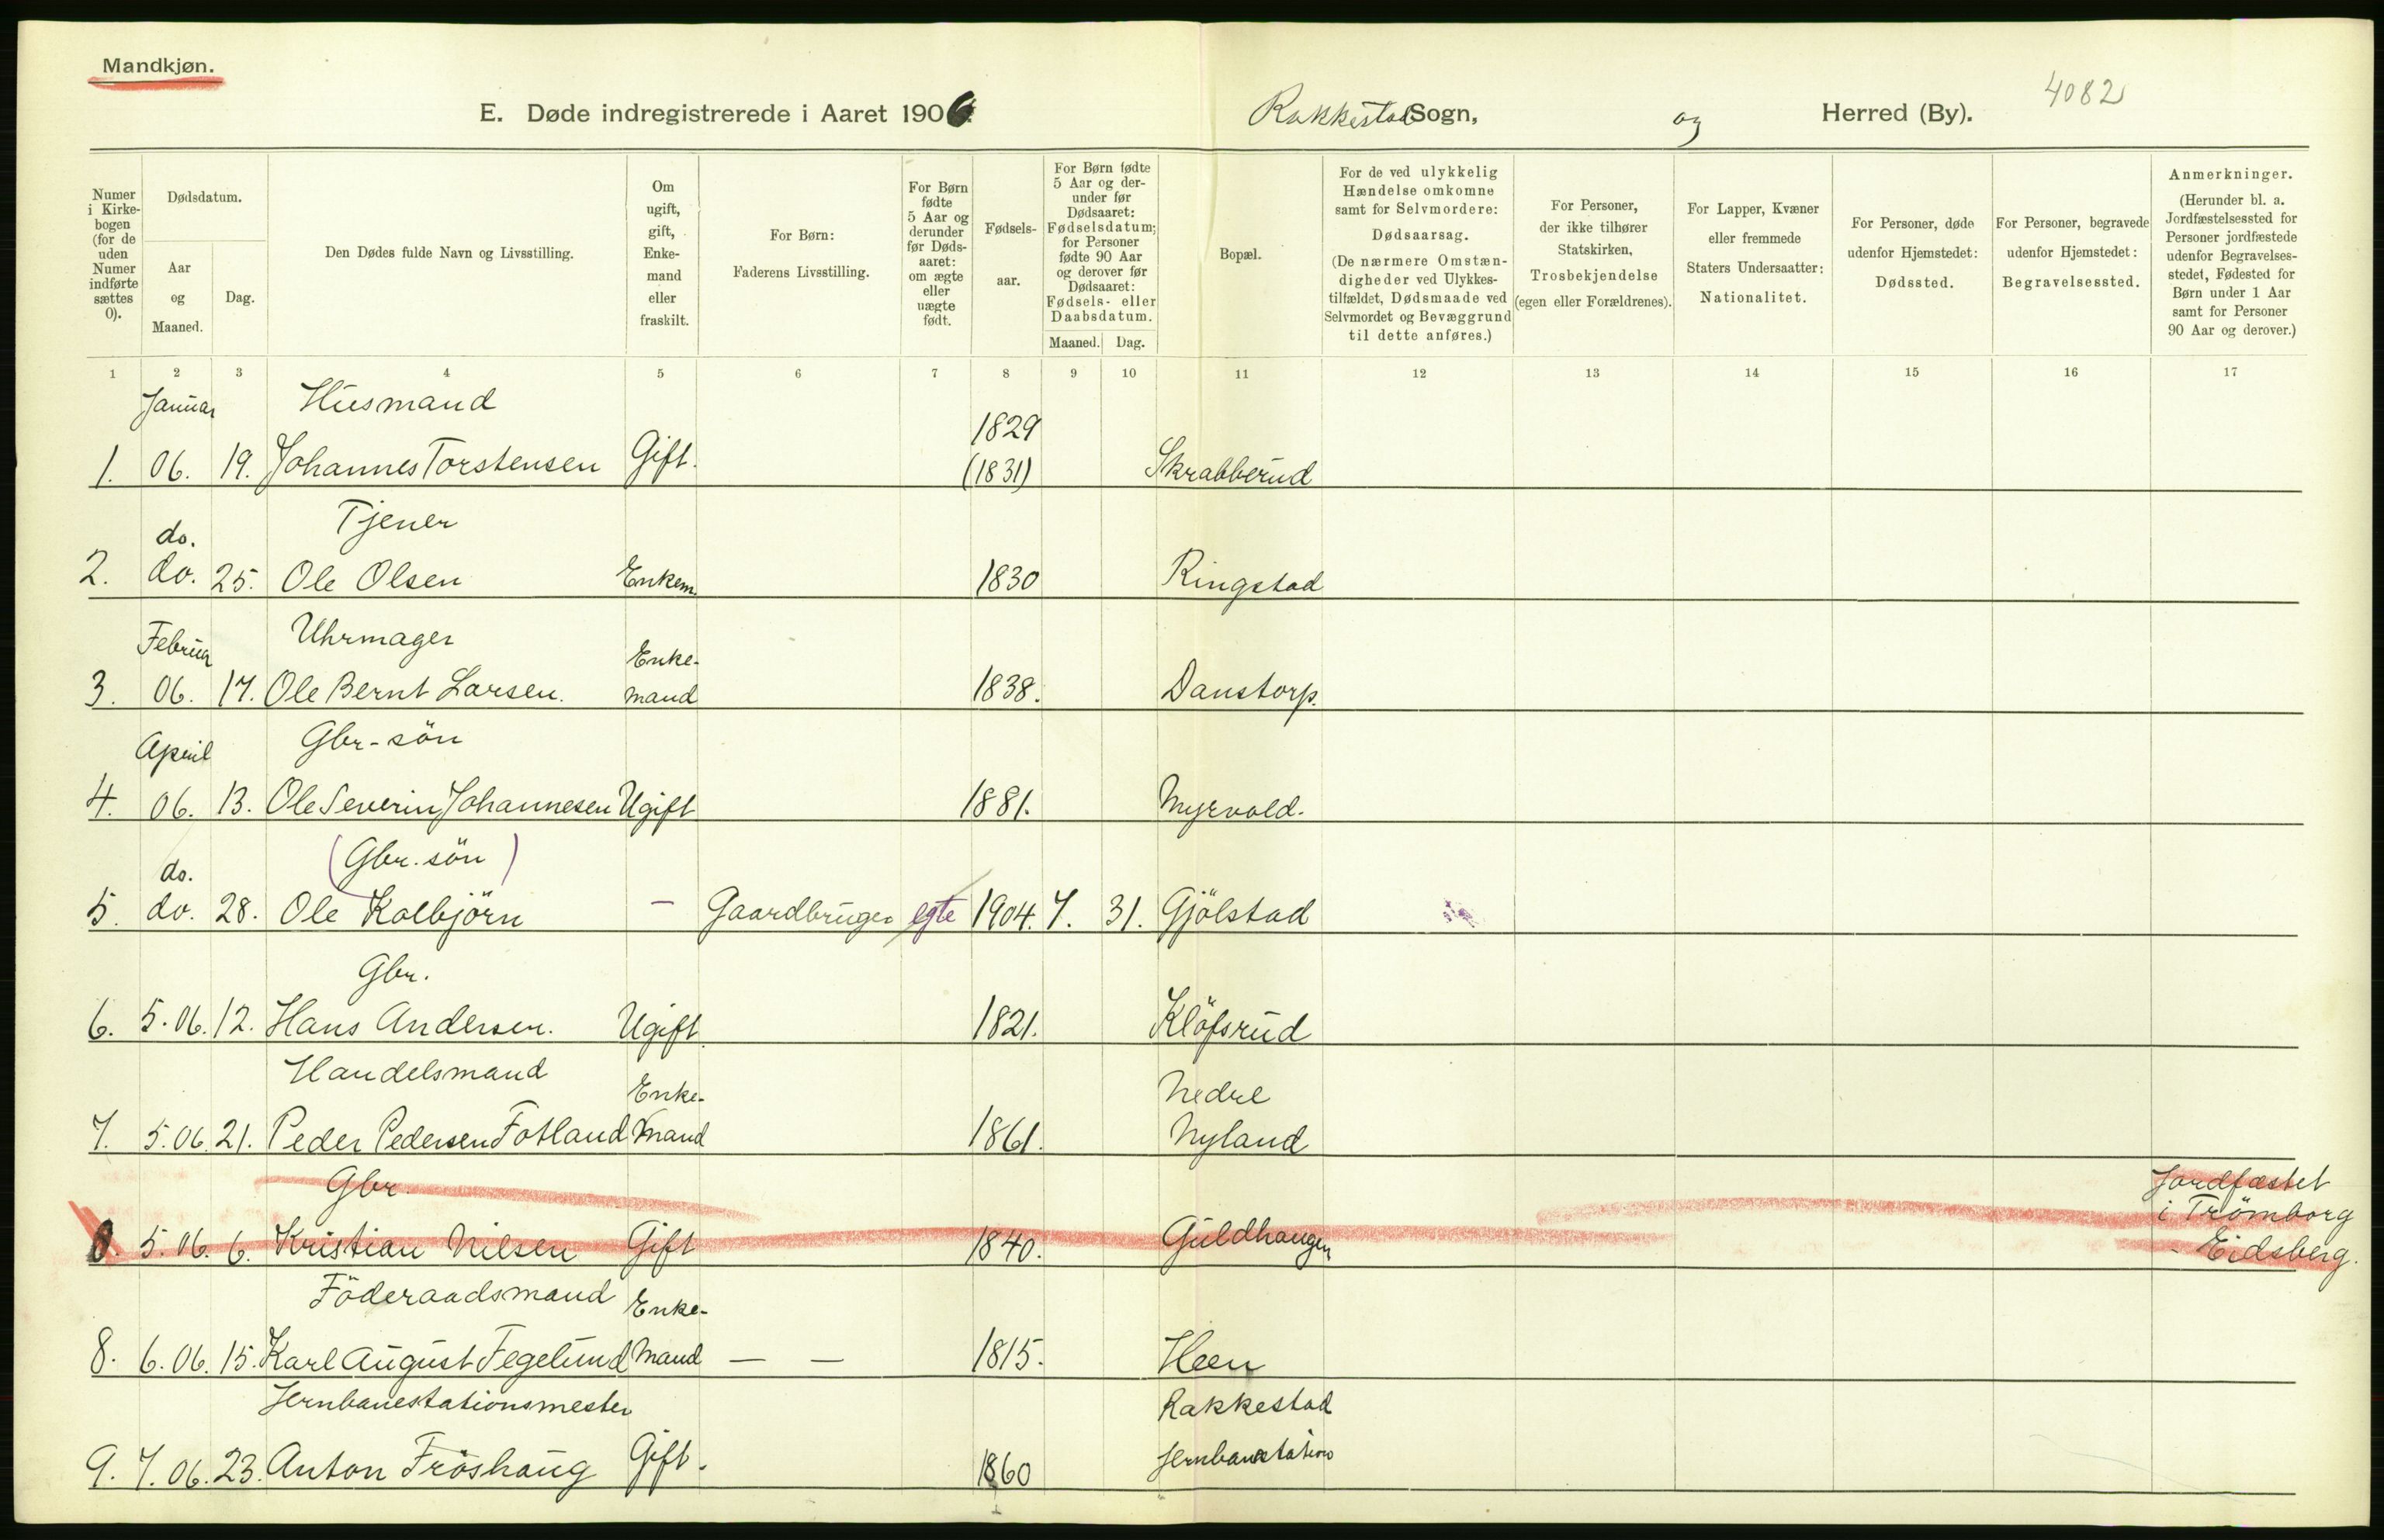 Mandkjøn.
4082
E. Døde indregistrerede i Aaret 1906. Rakkestad Sogn, og Herred (By).
Numer i Kirkebogen (for de uden Numer indførte sættes 0).
Dødsdatum.
Aar og Maaned.
Dag.
Den Dødes fulde Navn og Livsstilling.
Om ugift, gift, Enkemand eller fraskilt.
For Børn:
Faderens Livsstilling.
For Børn fødte 5 Aar og derunder før Dødsaaret: om ægte eller uægte født.
Fødselsaar.
For Børn fødte 5 Aar og derunder før Dødsaaret: Fødselsdatum; for Personer fødte 90 Aar og derover før Dødsaaret: Fødsels- eller Daabsdatum.
Maaned. Dag.
Bopæl.
For de ved ulykkelig Hændelse omkomne samt for Selvmordere:
Dødsaarsag.
(De nærmere Omstændigheder ved Ulykkestilfældet, Dødsmaade ved Selvmordet og Bevæggrund til dette anføres.)
For Personer, der ikke tilhører Statskirken,
Trosbekjendelse
(egen eller Forældrenes).
For Lapper, Kvæner eller fremmede Staters Undersaatter:
Nationalitet.
For Personer, døde udenfor Hjemstedet:
Dødssted.
For Personer, begravede udenfor Hjemstedet:
Begravelsessted.
Anmerkninger.
(Herunder bl. a. Jordfæstelsessted for Personer jordfæstede udenfor Begravelsesstedet, Fødested for Børn under 1 Aar samt for Personer 90 Aar og derover.)
1 2 3 4 5 6 7 8 9 10 11 12 13 14 15 16 17
Januar Husmand 1829
1. 06. 19. Johannes Torstensen Gift. (1831) Skrabberud
do. Tjener
2. do. 25. Ole Olsen Enkem. 1830 Ringstad
Februar Uhrmager Enke-
3. 06. 17. Ole Bernt Larsen. mand 1838. Danstorp.
April Gbr-sön
4. 06. 13. Ole Severin Johannesen Ugift 1881. Myrvold.
do. (Gbr. sön)
5. do. 28. Ole Kolbjörn — Gaardbruger egte 1904. 7. 31. Gjölstad
Gbr.
6. 5. 06. 12. Hans Andersen. Ugift. 1821. Klöfsrud
Handelsmand Enke- Nedre
7. 5. 06. 21. Peder Pedersen Fotland mand 1861. Nyland
Gbr. Jordfæstet
i Trömborg
0. 5. 06. 6. Kristian Nilsen Gift 1840. Guldhaugen - Eidsberg.
Föderaadsmand Enke-
8. 6. 06. 15. Karl August Fegelund mand — — 1815. Heen
Jernbanestationsmester Rakkestad
9. 7. 06. 23. Anton Fröshaug Gift. 1860 Jernbanestation